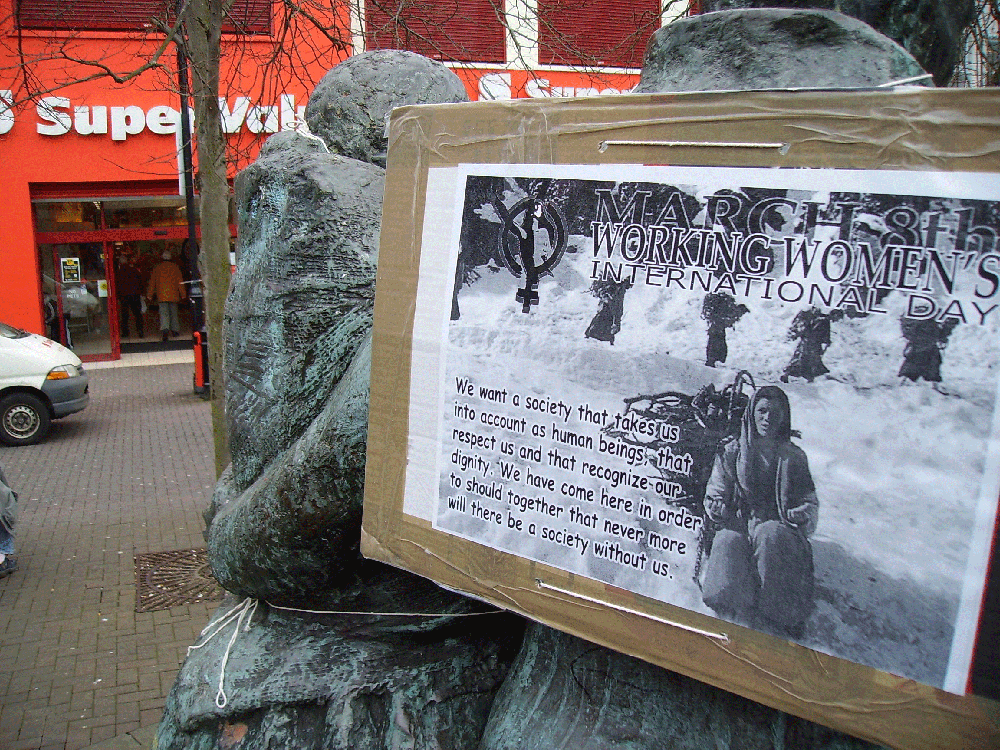 SuperValu
Super
MARCH 8th
WORKING WOMEN'S
INTERNATIONAL DAY
We want a society that takes us
into account as human beings, that
respect us and that recognize our
dignity. We have come here in order
to should together that never more
will there be a society without us.